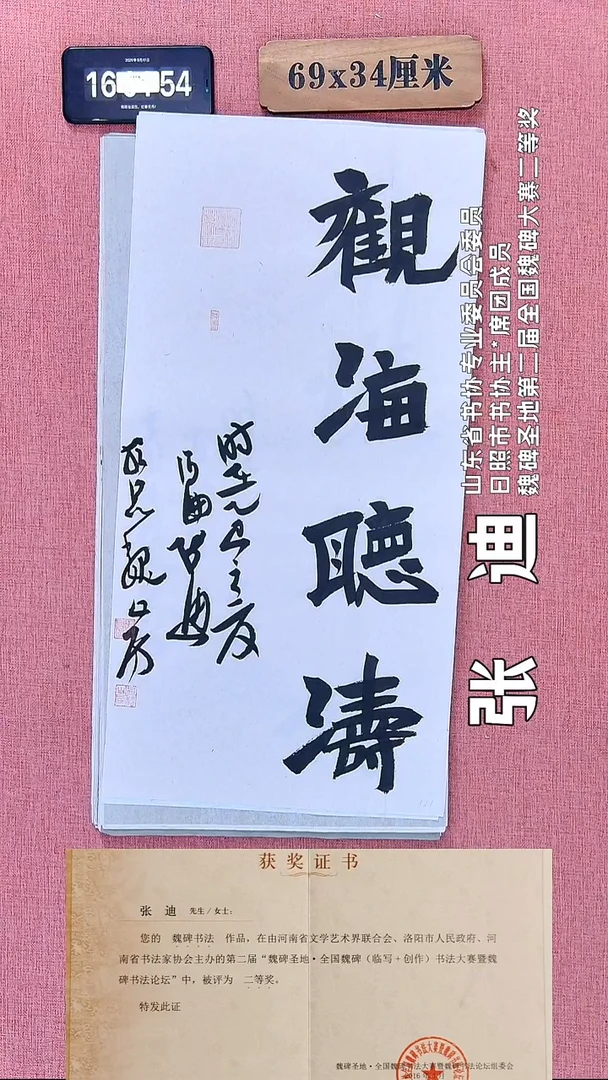 69x34厘米
觀海聽濤
山东省书协专业委员会委员
日照市书协主*席团成员
魏碑圣地第二届全国魏碑大赛二等奖
张 迪
获奖证书
张 迪 先生/女士：
您的 魏碑书法 作品，在由河南省文学艺术界联合会、洛阳市人民政府、河
南省书法家协会主办的第二届“魏碑圣地·全国魏碑（临写+创作）书法大赛暨魏
碑书法论坛”中，被评为 二等奖。
特发此证
魏碑圣地·全国魏碑书法大赛暨魏碑书法论坛组委会